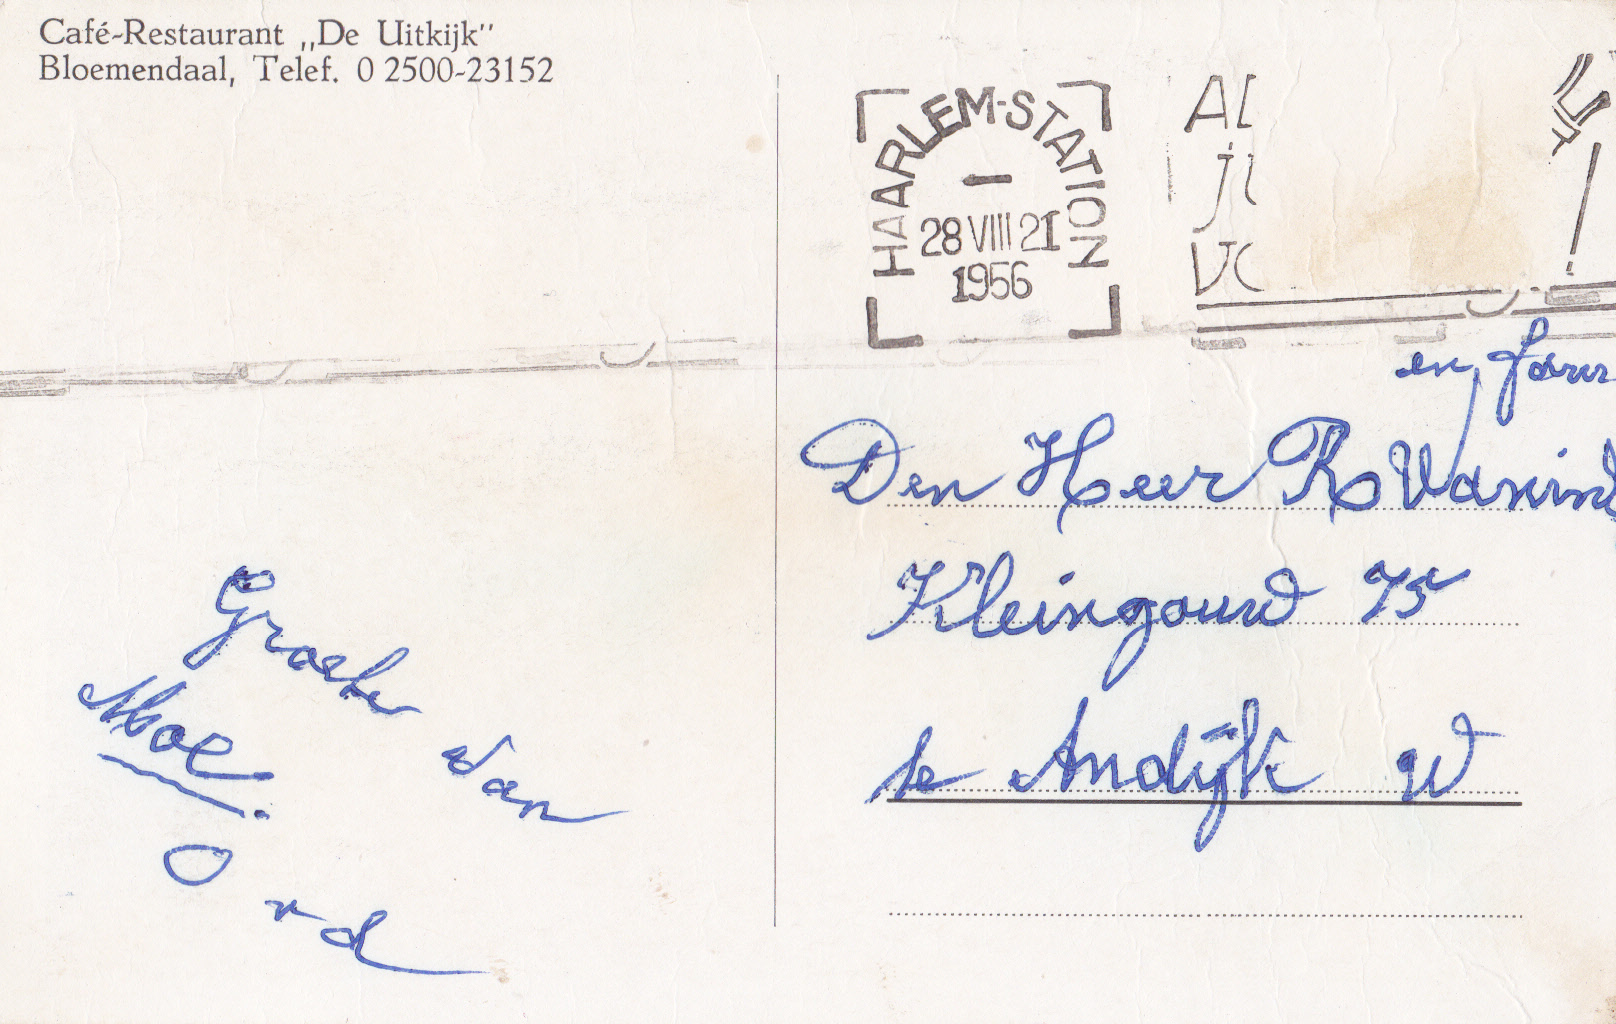 Café-Restaurant „De Uitkijk"
Bloemendaal, Telef. 0 2500-23152
HAARLEM-STATION
28 VIII 21
1956
en fam
Den Heer R
Kleingouw 75
te Andijk W
Groeten van
Moe.
O vd